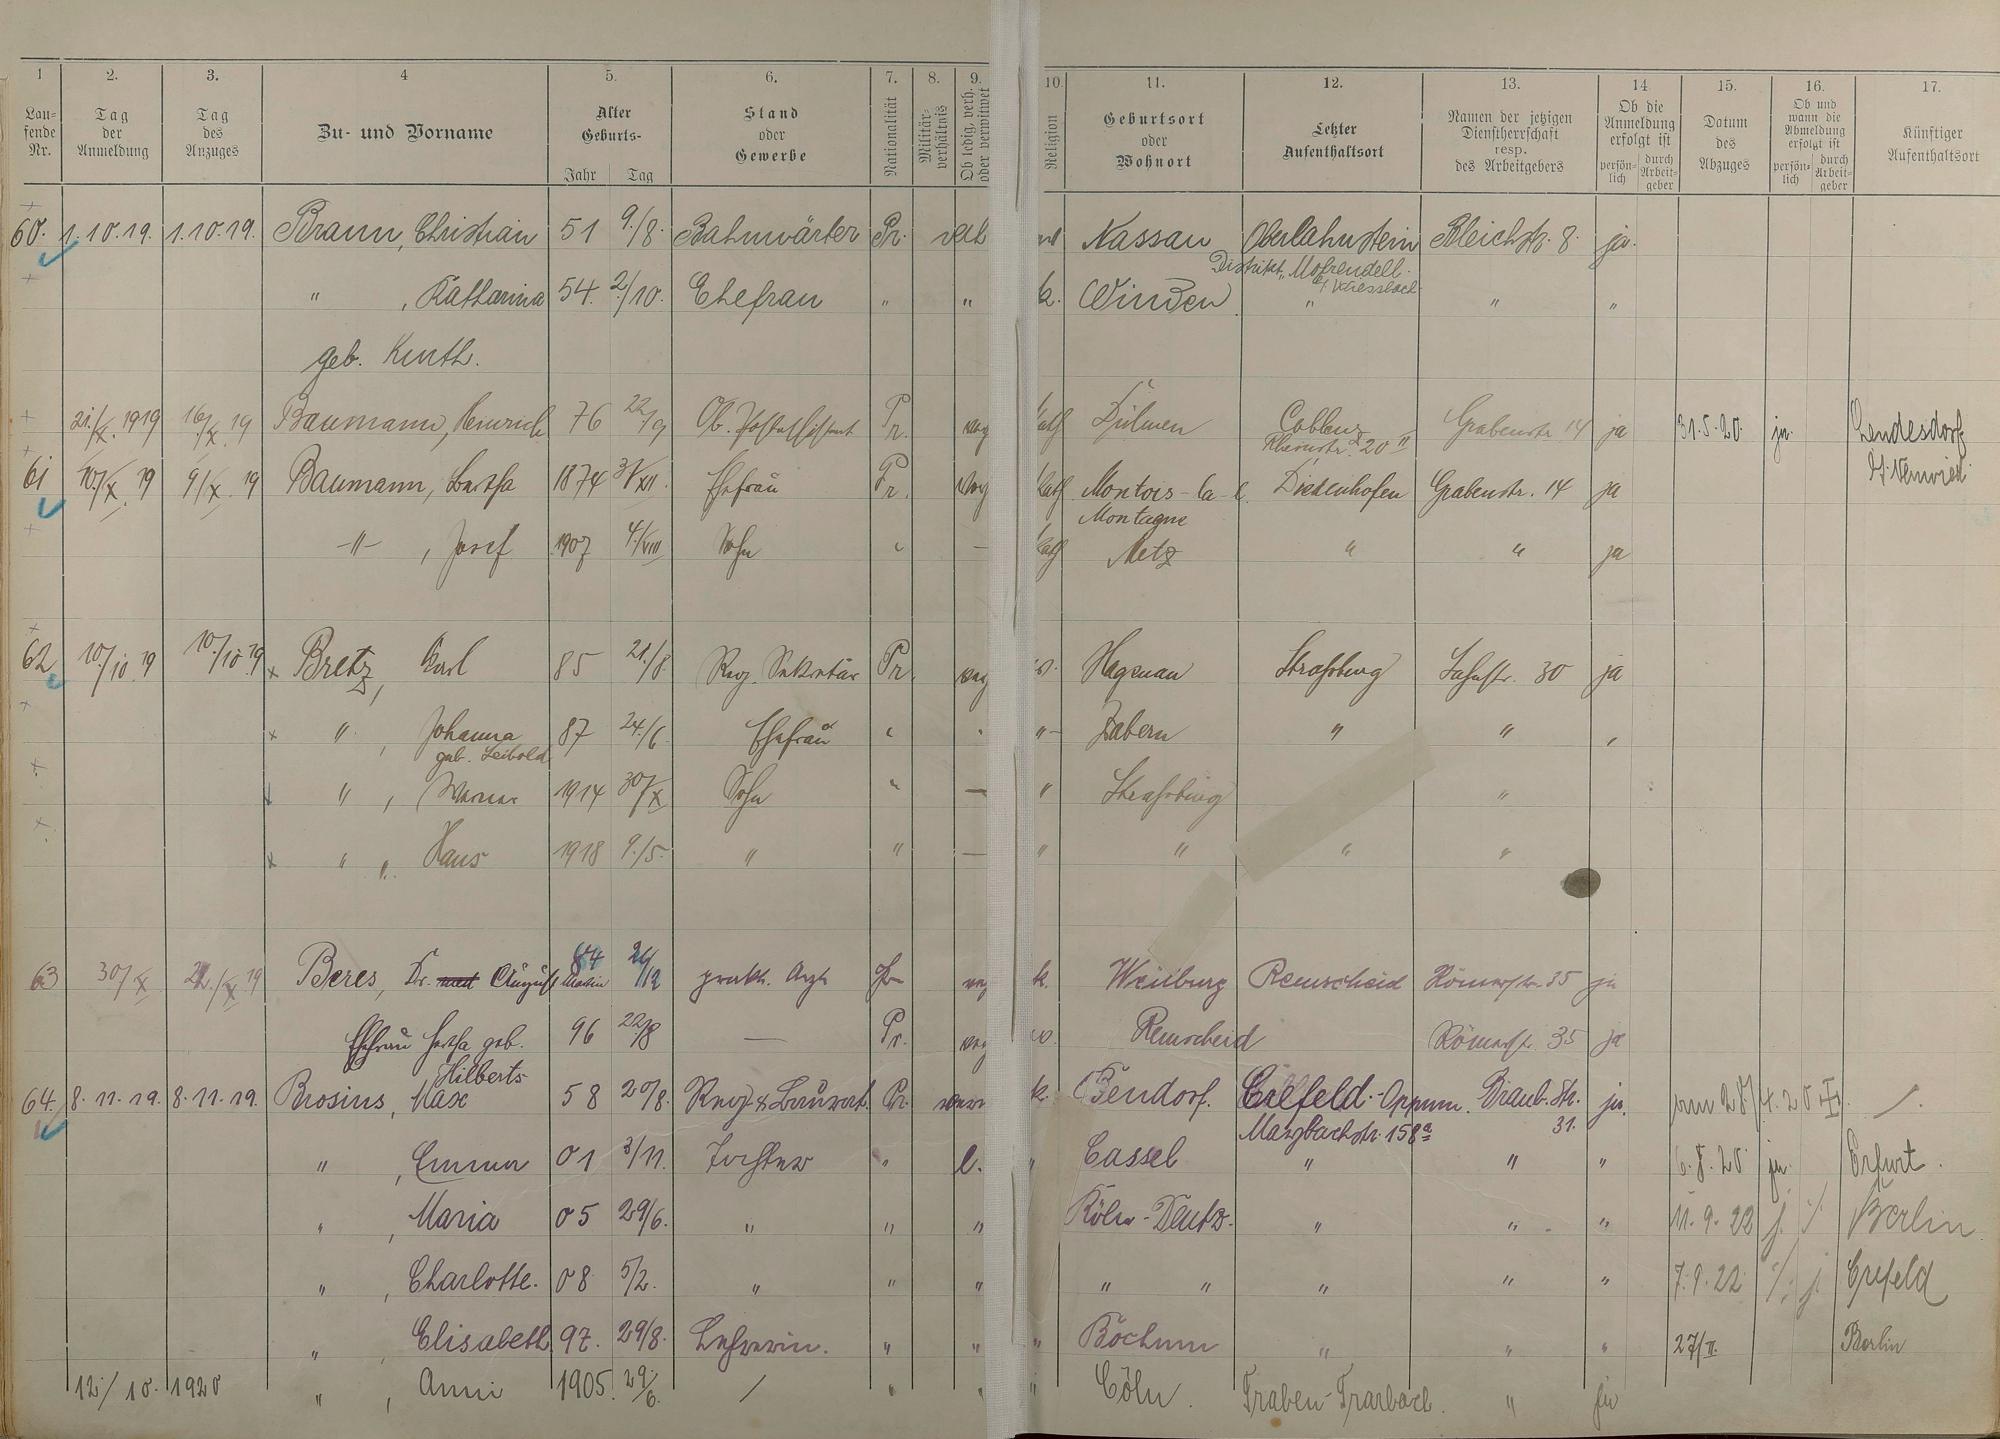 1 2. 3. 4 5. 6. 7. 8. 9. 10. 11. 12. 13. 14 15. 16. 17.
Lau-
fende
Nr.
Tag
der
Anmeldung
Tag
des
Anzuges
Zu- und Vorname
Alter
Geburts-
Jahr Tag
Stand
oder
Gewerbe
Nationalität
Militär-
verhältnis
Ob ledig, verh.
oder verwitwet
Religion
Geburtsort
oder
Wohnort
Letzter
Aufenthaltsort
Namen der jetzigen
Dienstherrschaft
resp.
des Arbeitgebers
Ob die
Anmeldung
erfolgt ist
persön-
lich
durch
Arbeit-
geber
Datum
des
Abzuges
Ob und
wann die
Abmeldung
erfolgt ist
persön-
lich
durch
Arbeit-
geber
Künftiger
Aufenthaltsort
60. 1.10.19. 1.10.19. Braun, Christian 51 9./8. Bahnwärter Pr. Nassau Oberlahnstein Bleichstr. 8. ja.
Distrikt
" , Katharina 54. 2/10. Ehefrau " " k. Winden " " "
geb. Kurth.
21./X. 1919 16/X. 19 Baumann, Heinrich 76 22/9 Ob. Postassistent Pr. kath Dülmen Coblenz Grabenstr 14 ja 31.5.20. ja.
Rheinstr. 20 II
61 10/X. 19 9/X. 19 Baumann, Bertha 1874 31/XII. Ehefrau Pr. kath Montois-la- Diedenhofen Grabenstr. 14 ja
Montagne
-"- , Josef 1907 4./VIII Sohn " — kath Metz " " ja
62 10/10 19 10/10 19 Bretz, Karl 85 21./8. Reg. Sekretär Pr. Hagenau Straßburg Lahnstr. 30 ja
" , Johanna 87 24./6 Ehefrau " " Zabern " " "
geb. Leibold
" , Werner 1914 30/X Sohn " — " Straßburg "
" " Hans 1918 9./5. " " — " " " "
63 30/X 22./X 19 Beres, Dr. med August 84 24/12 prakt. Arzt Pr k. Weilburg Remscheid Römerstr. 35 ja
Ehefrau Hertha geb. 96 22/8 — Pr. Remscheid Römerstr. 35 ja
Hilberts
64. 8.11.19. 8.11.19. Brosius, Max 58 20/8. Reg. & Baurat. Pr. k. Bendorf. Crefeld-Oppum. Braub. Str. ja.
31.
" , Emma 01 3/11. Tochter " l. " Cassel " " " 6.8.20 ja. Erfurt.
" , Maria 05 29/6. " " " Köln-Deutz. " " " 11.9.22 j. Berlin
" , Charlotte. 08 5/2. " " " " " " " " 7.9.22 j. Crefeld
" , Elisabeth 97. 29/8. Lehrerin. " " " Bochum " " " 27/II. Berlin
12/10. 1920 " , Anni 1905. 29./6. / " " " Cöln. Traben-Trarbach. " ja